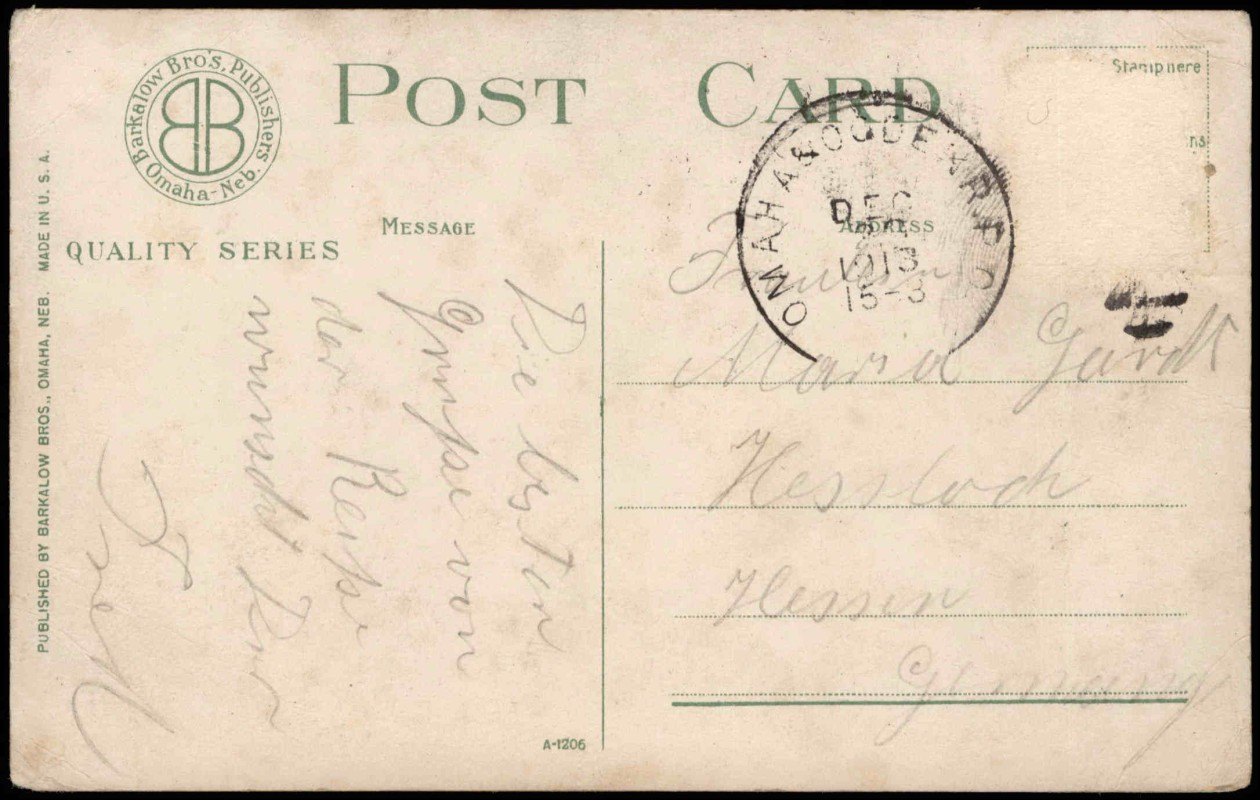 Barkalow Bro's, Publishers
Omaha-Neb.
POST CARD
Stamp here
ns
OMAHA & OGDEN R.P.O
DEC
1913
15-3
MESSAGE
ADDRESS
QUALITY SERIES
PUBLISHED BY BARKALOW BROS., OMAHA, NEB. MADE IN U. S. A.
Die besten
Grüsse von
der Reise
wünscht Dir
Maria
Hessloch
Hessen
Germany
A-1206